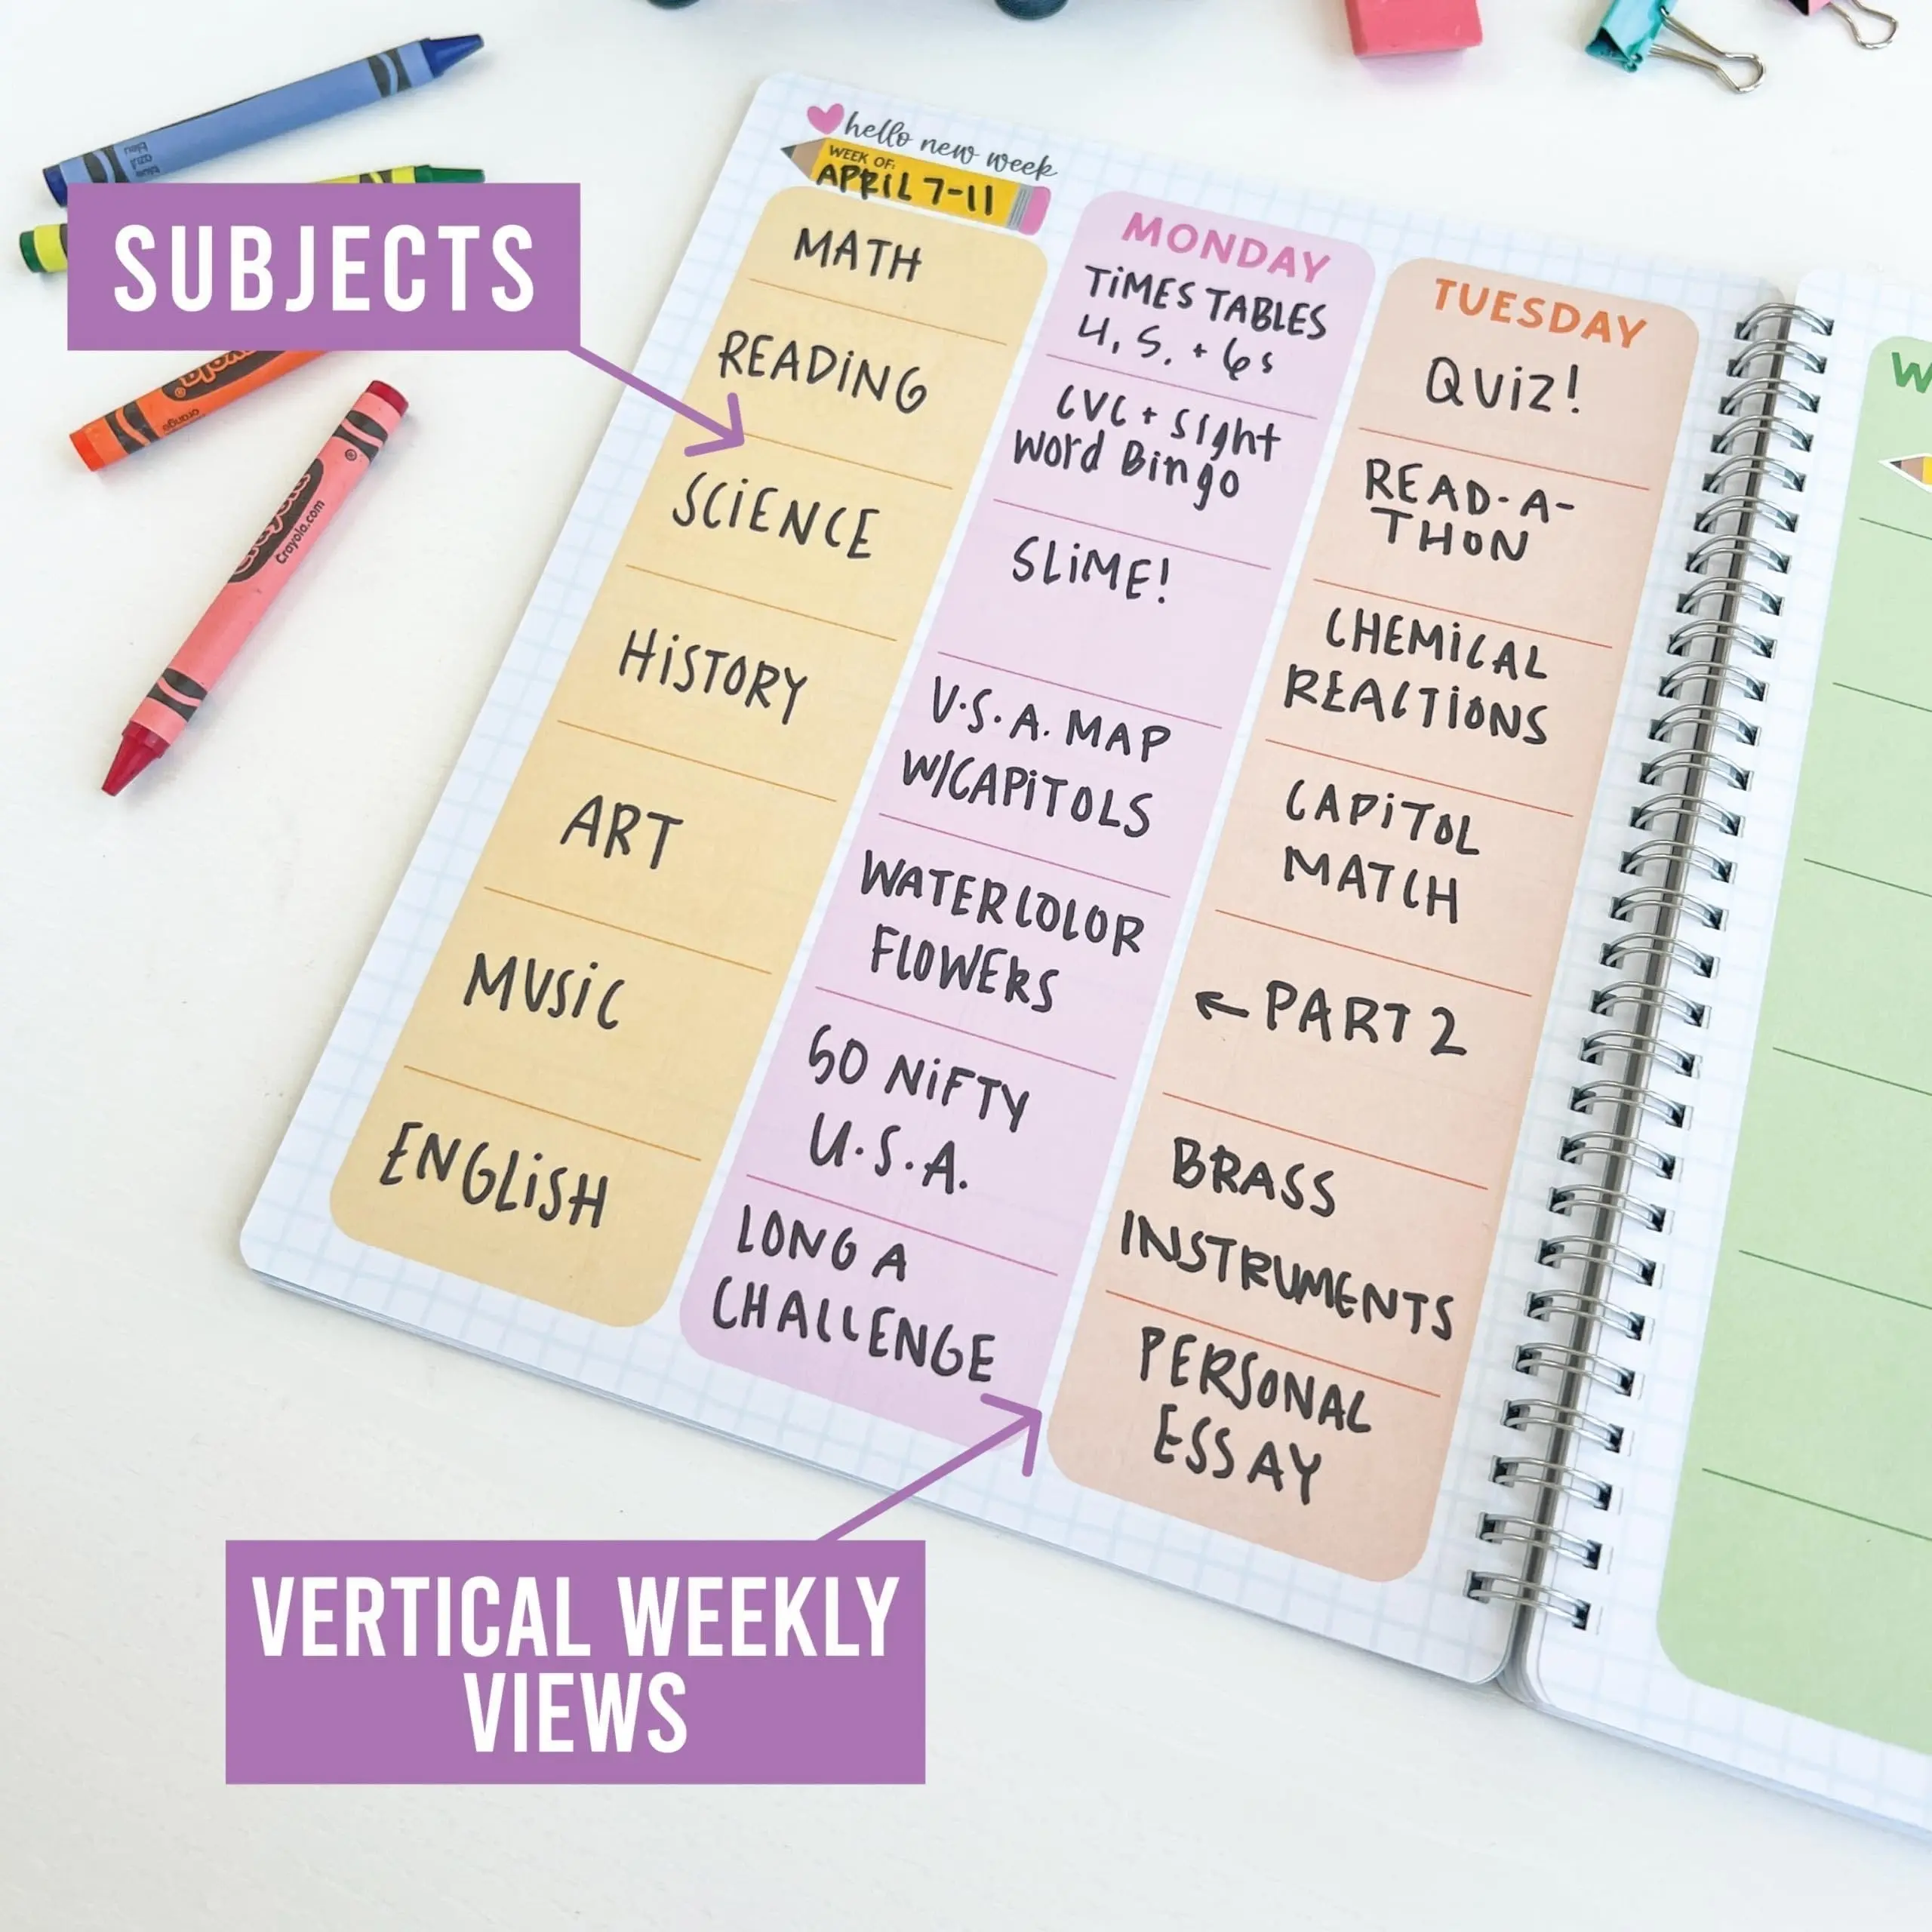 hello new week
WEEK OF:
APRIL 7-11
SUBJECTS
MATH
READING
SCIENCE
HISTORY
ART
MUSIC
ENGLISH
MONDAY
TIMES TABLES
4, 5, + 6s
CVC + Sight
Word Bingo
SLIME!
U.S.A. MAP
W/CAPITOLS
WATERCOLOR
FLOWERS
50 NIFTY
U.S.A.
LONG A
CHALLENGE
TUESDAY
QUIZ!
READ-A-
THON
CHEMICAL
REACTIONS
CAPITOL
MATCH
← PART 2
BRASS
INSTRUMENTS
PERSONAL
ESSAY
W
VERTICAL WEEKLY
VIEWS
bleu
azul
blue
orange
Crayola
Crayola.com